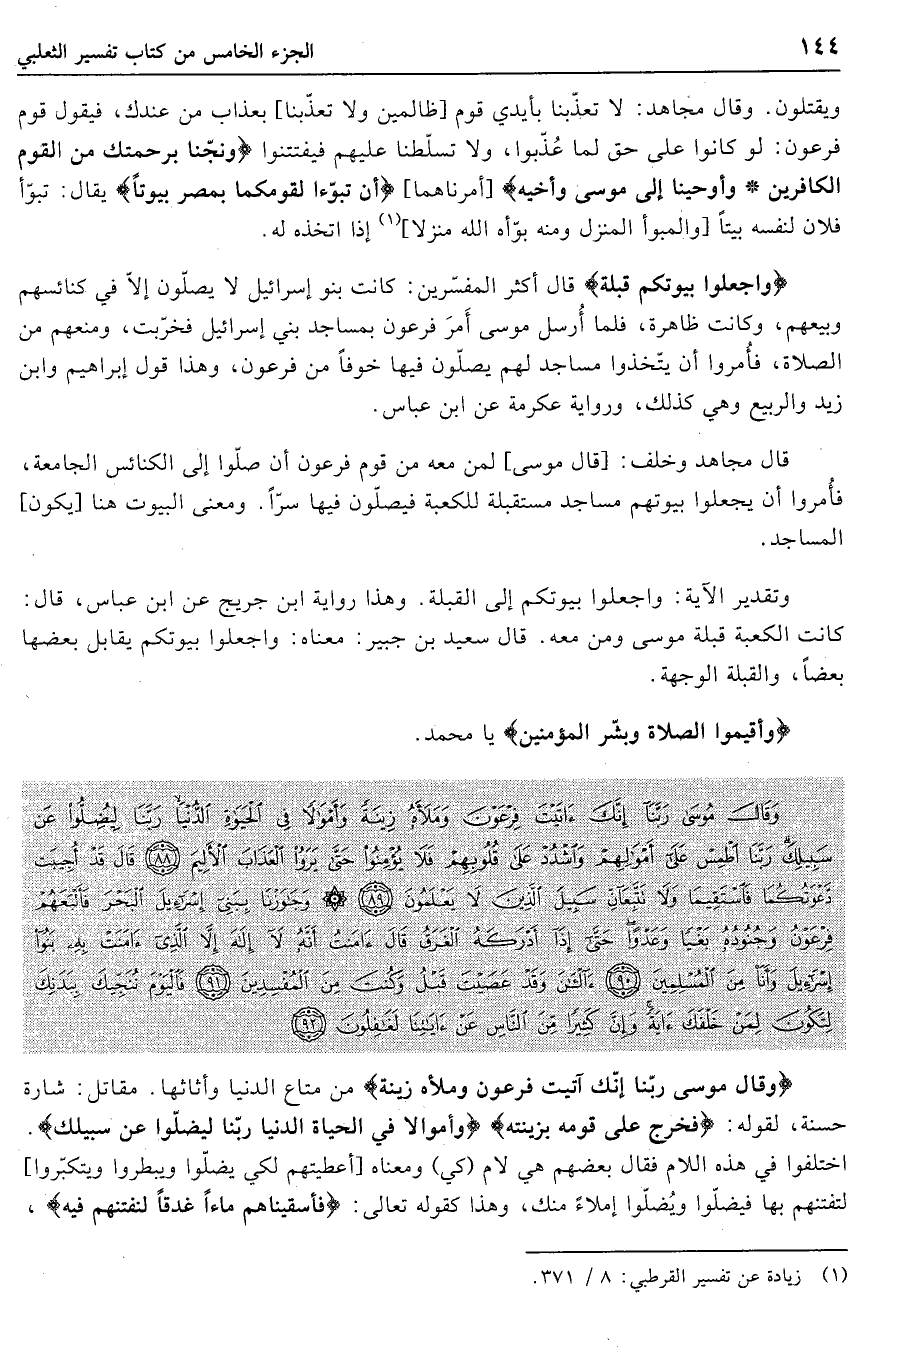 ١٤٤ الجزء الخامس من كتاب تفسير الثعلبي
ويقتلون. وقال مجاهد: لا تعذّبنا بأيدي قوم [ظالمين ولا تعذّبنا] بعذاب من عندك، فيقول قوم
فرعون: لو كانوا على حق لما عُذّبوا، ولا تسلّطنا عليهم فيفتتنوا ﴿ونجّنا برحمتك من القوم
الكافرين * وأوحينا إلى موسى وأخيه﴾ [أمرناهما] ﴿أن تبوّءا لقومكما بمصر بيوتاً﴾ يقال: تبوّأ
فلان لنفسه بيتاً [والمبوأ المنزل ومنه بوّأه الله منزلا](١) إذا اتخذه له.
﴿واجعلوا بيوتكم قبلة﴾ قال أكثر المفسّرين: كانت بنو إسرائيل لا يصلّون إلاّ في كنائسهم
وبيعهم، وكانت ظاهرة، فلما أُرسل موسى أَمرَ فرعون بمساجد بني إسرائيل فخرّبت، ومنعهم من
الصلاة، فأُمروا أن يتّخذوا مساجد لهم يصلّون فيها خوفاً من فرعون، وهذا قول إبراهيم وابن
زيد والربيع وهي كذلك، ورواية عكرمة عن ابن عباس.
قال مجاهد وخلف: [قال موسى] لمن معه من قوم فرعون أن صلّوا إلى الكنائس الجامعة،
فأُمروا أن يجعلوا بيوتهم مساجد مستقبلة للكعبة فيصلّون فيها سرّاً. ومعنى البيوت هنا [يكون]
المساجد.
وتقدير الآية: واجعلوا بيوتكم إلى القبلة. وهذا رواية ابن جريج عن ابن عباس، قال:
كانت الكعبة قبلة موسى ومن معه. قال سعيد بن جبير: معناه: واجعلوا بيوتكم يقابل بعضها
بعضاً، والقبلة الوجهة.
﴿وأقيموا الصلاة وبشّر المؤمنين﴾ يا محمد.
وَقَالَ مُوسَىٰ رَبَّنَا إِنَّكَ ءَاتَيْتَ فِرْعَوْنَ وَمَلَأَهُ زِينَةً وَأَمْوَالًا فِي الْحَيَوٰةِ الدُّنْيَا رَبَّنَا لِيُضِلُّوا عَن
سَبِيلِكَ رَبَّنَا اطْمِسْ عَلَىٰ أَمْوَٰلِهِمْ وَاشْدُدْ عَلَىٰ قُلُوبِهِمْ فَلَا يُؤْمِنُوا حَتَّىٰ يَرَوُا الْعَذَابَ الْأَلِيمَ (٨٨) قَالَ قَدْ أُجِيبَت
دَّعْوَتُكُمَا فَاسْتَقِيمَا وَلَا تَتَّبِعَانِّ سَبِيلَ الَّذِينَ لَا يَعْلَمُونَ (٨٩) ۞ وَجَٰوَزْنَا بِبَنِي إِسْرَٰءِيلَ الْبَحْرَ فَأَتْبَعَهُمْ
فِرْعَوْنُ وَجُنُودُهُ بَغْيًا وَعَدْوًا حَتَّىٰ إِذَا أَدْرَكَهُ الْغَرَقُ قَالَ ءَامَنتُ أَنَّهُ لَا إِلَٰهَ إِلَّا الَّذِي ءَامَنَتْ بِهِ بَنُوا
إِسْرَٰءِيلَ وَأَنَا مِنَ الْمُسْلِمِينَ (٩٠) ءَآلْـَٰنَ وَقَدْ عَصَيْتَ قَبْلُ وَكُنتَ مِنَ الْمُفْسِدِينَ (٩١) فَالْيَوْمَ نُنَجِّيكَ بِبَدَنِكَ
لِتَكُونَ لِمَنْ خَلْفَكَ ءَايَةً وَإِنَّ كَثِيرًا مِّنَ النَّاسِ عَنْ ءَايَٰتِنَا لَغَٰفِلُونَ (٩٢)
﴿وقال موسى ربّنا إنّك آتيت فرعون وملأه زينة﴾ من متاع الدنيا وأثاثها. مقاتل: شارة
حسنة، لقوله: ﴿فخرج على قومه بزينته﴾ ﴿وأموالا في الحياة الدنيا ربّنا ليضلّوا عن سبيلك﴾.
اختلفوا في هذه اللام فقال بعضهم هي لام (كي) ومعناه [أعطيتهم لكي يضلّوا ويبطروا ويتكبّروا]
لتفتنهم بها فيضلّوا ويُضلّوا إملاءً منك، وهذا كقوله تعالى: ﴿فأسقيناهم ماءاً غدقاً لنفتنهم فيه﴾،
(١) زيادة عن تفسير القرطبي: ٨ / ٣٧١.